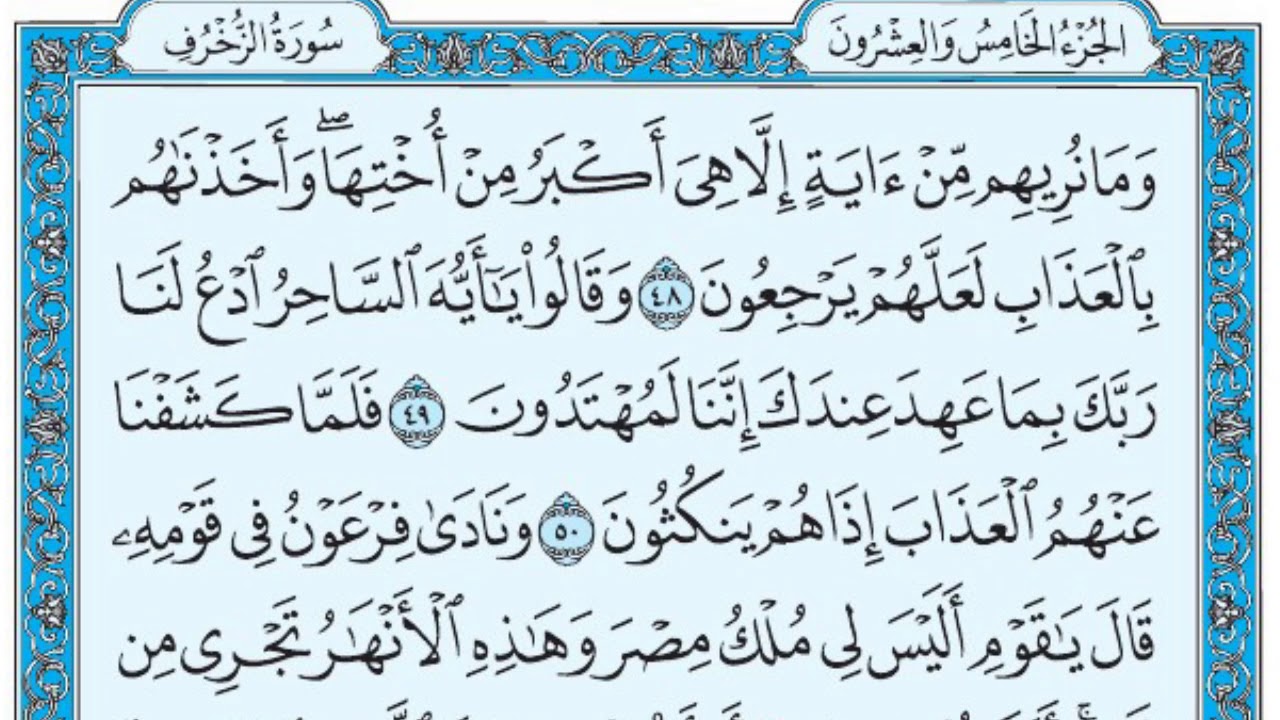 الجُزْءُ الخَامِسُ وَالعِشْرُونَ
سُورَةُ الزُّخْرُفِ
وَمَا نُرِيهِم مِّنْ ءَايَةٍ إِلَّا هِىَ أَكْبَرُ مِنْ أُخْتِهَا ۖ وَأَخَذْنَٰهُم
بِٱلْعَذَابِ لَعَلَّهُمْ يَرْجِعُونَ ٤٨ وَقَالُوا۟ يَٰٓأَيُّهَ ٱلسَّاحِرُ ٱدْعُ لَنَا
رَبَّكَ بِمَا عَهِدَ عِندَكَ إِنَّنَا لَمُهْتَدُونَ ٤٩ فَلَمَّا كَشَفْنَا
عَنْهُمُ ٱلْعَذَابَ إِذَا هُمْ يَنكُثُونَ ٥٠ وَنَادَىٰ فِرْعَوْنُ فِى قَوْمِهِۦ
قَالَ يَٰقَوْمِ أَلَيْسَ لِى مُلْكُ مِصْرَ وَهَٰذِهِ ٱلْأَنْهَٰرُ تَجْرِى مِن